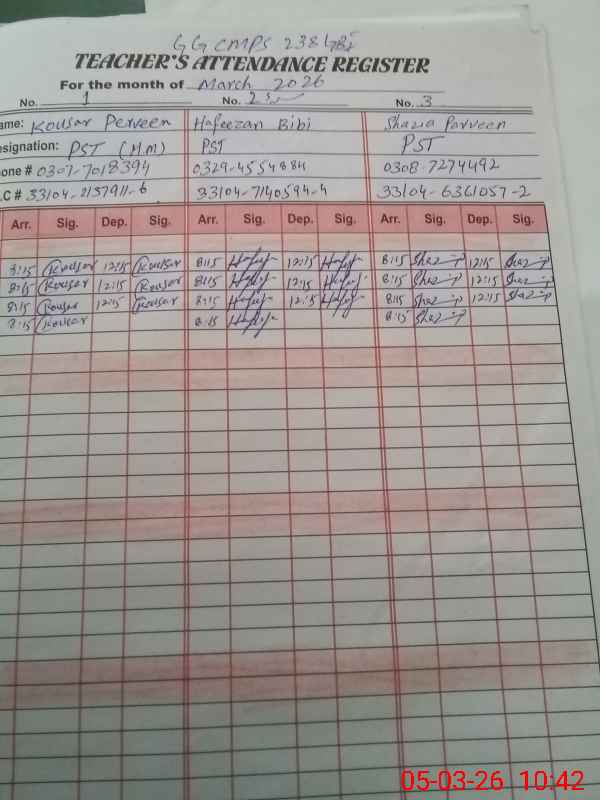 GG CMPS 238 GB
TEACHER'S ATTENDANCE REGISTER
For the month of March 2026
No. 1 No. 2 No. 3
ame: Kousar Perveen Hafeezan Bibi Shazia Parveen
esignation: PST (H.M) PST PST
one # 0307-7018394 0329-4554884 0308-7274492
.C # 33104-2157911-6 33104-7140594-4 33104-6361057-2
Arr. Sig. Dep. Sig. Arr. Sig. Dep. Sig. Arr. Sig. Dep. Sig.
8:15 Kousar 12:15 Kousar 8:15 Hafeez 12:15 Hafeez 8:15 Shazia 12:15 Shazia
8:15 Kousar 12:15 Kousar 8:15 Hafeez 12:15 Hafeez 8:15 Shazia 12:15 Shazia
8:15 Kousar 12:15 Kousar 8:15 Hafeez 12:15 Hafeez 8:15 Shazia 12:15 Shazia
8:15 Kousar 8:15 Hafeez 8:15 Shazia
05-03-26 10:42